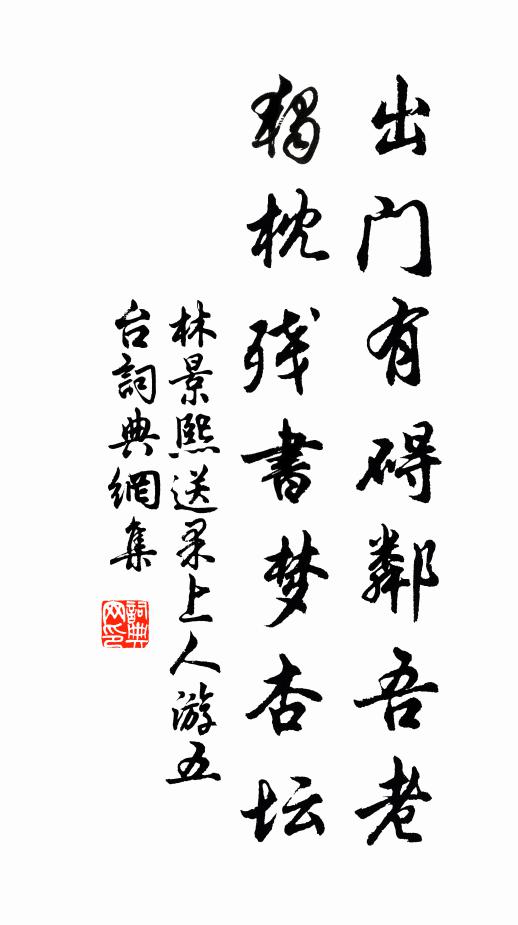 出门有碍鄰吾老
獨枕残書梦杏坛
林景熙送杲上人游五
台詞典網集
詞典网印